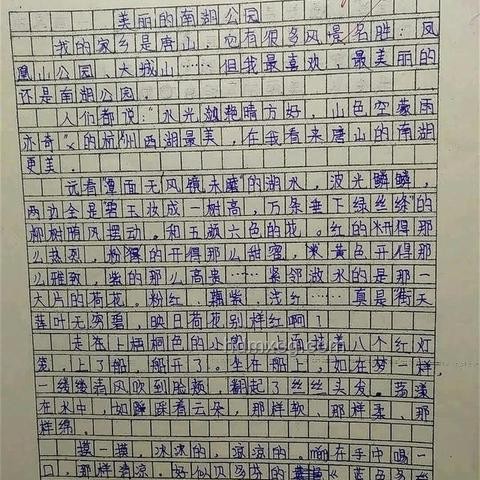 美丽的南湖公园
我的家乡是唐山，它有很多风景名胜：凤
凰山公园、大城山……但我最喜欢、最美丽的
还是南湖公园。
人们都说："水光潋滟晴方好，山色空蒙雨
亦奇"的杭州西湖最美，在我看来唐山的南湖
更美。
远看"潭面无风镜未磨"的湖水，波光鳞鳞，
两边全是"碧玉妆成一树高，万条垂下绿丝绦"的
柳树随风摆动。和五颜六色的花。红的开得那
么热烈，粉的开得那么甜蜜，黄色开得那
么雅致，紫的那么高贵……紧邻湖水的是那一
大片的荷花。粉红、藕紫、浅红……真是"接天
莲叶无穷碧，映日荷花别样红啊！
走在上桐色的小船，一直挂着八个红灯
笼，上了船，船开了。坐在船上，如在梦一样，
一缕缕清风吹到脸颊，翻起了丝丝头发。荡漾
在水中，如踩着云朵，那样软、那样柔、那
样绵。
摸一摸，冰冰的，凉凉的。在手中喝一
口，那样清凉。好似贝多芬的《蓝色多